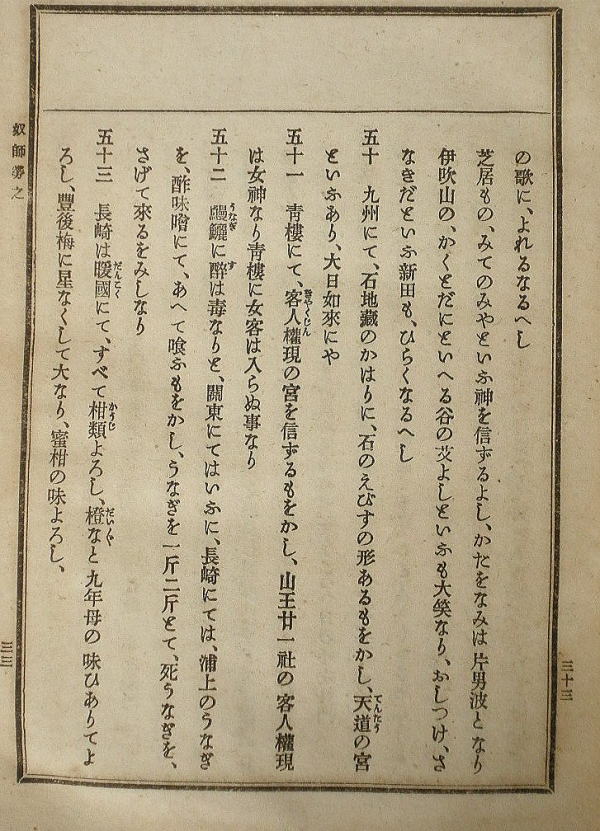 の歌に、よれるなるへし
芝居もの、みてのみやといふ神を信ずるよし、かたをなみは片男波となり
伊吹山の、かくとだにといへる谷の艾よしといふも大笑なり、おしつけ、さ
なきだといふ新田も、ひらくなるへし
五十　九州にて、石地藏のかはりに、石のえびすの形あるもをかし、天道の宮
てんたう
といふあり、大日如來にや
五十一　靑樓にて、客人權現の宮を信ずるもをかし、山王廿一社の客人權現
きやくじん
は女神なり靑樓に女客は入らぬ事なり
五十二　鰻鱺に醉は毒なりと、關東にてはいふに、長崎にては、浦上のうなぎ
うなぎ
す
を、酢味噌にて、あへて喰ふもをかし、うなぎを一斤二斤とて、死うなぎを、
さげて來るをみしなり
五十三　長崎は暖國にて、すべて柑類よろし、橙なと九年母の味ひありてよ
だんこく
かうじ
だいだい
ろし、豐後梅に星なくして大なり、蜜柑の味よろし、
奴師勞之
三十三
三三